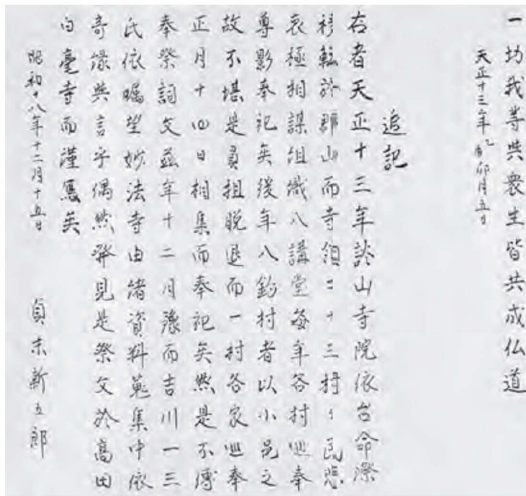 一切我等共衆生皆共成仏道
天正十三年乙酉卯月五日
追記
右者天正十三年談山寺院依台命際
移転於郡山而寺領二十三村々民悲
哀極相謀組織八講堂毎年各村廻奉
尊影奉祀矣後年八釣村者以小邑之
故不堪是負担脱退而一村各家廻奉
正月十四日相集而奉祀矣然是不傳
奉祭詞文茲年十二月豫而吉川一三
氏依嘱望妙法寺由緒資料蒐集中依
奇縁共言乎偶然発見是祭文於高田
白毫寺而謹写矣
昭和十八年十二月十五日 貞末新五郎